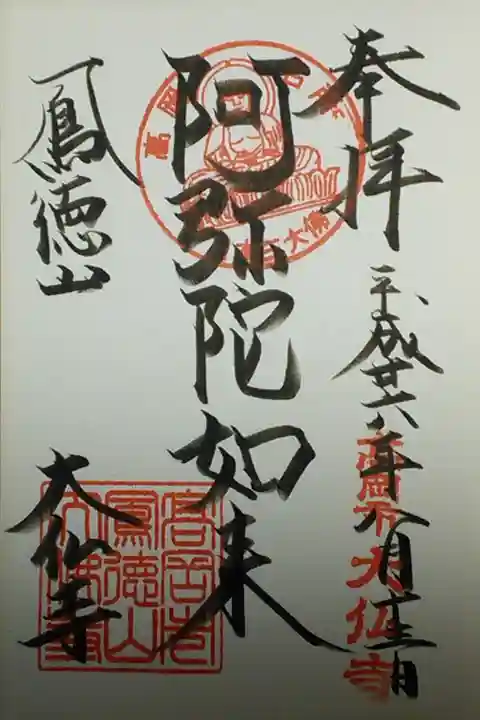 奉拝
平成廿六年八月
高岡市大仏寺
阿弥陀如来
高岡
大佛
鳳徳山
大仏寺
高岡市
鳳徳山
大佛寺